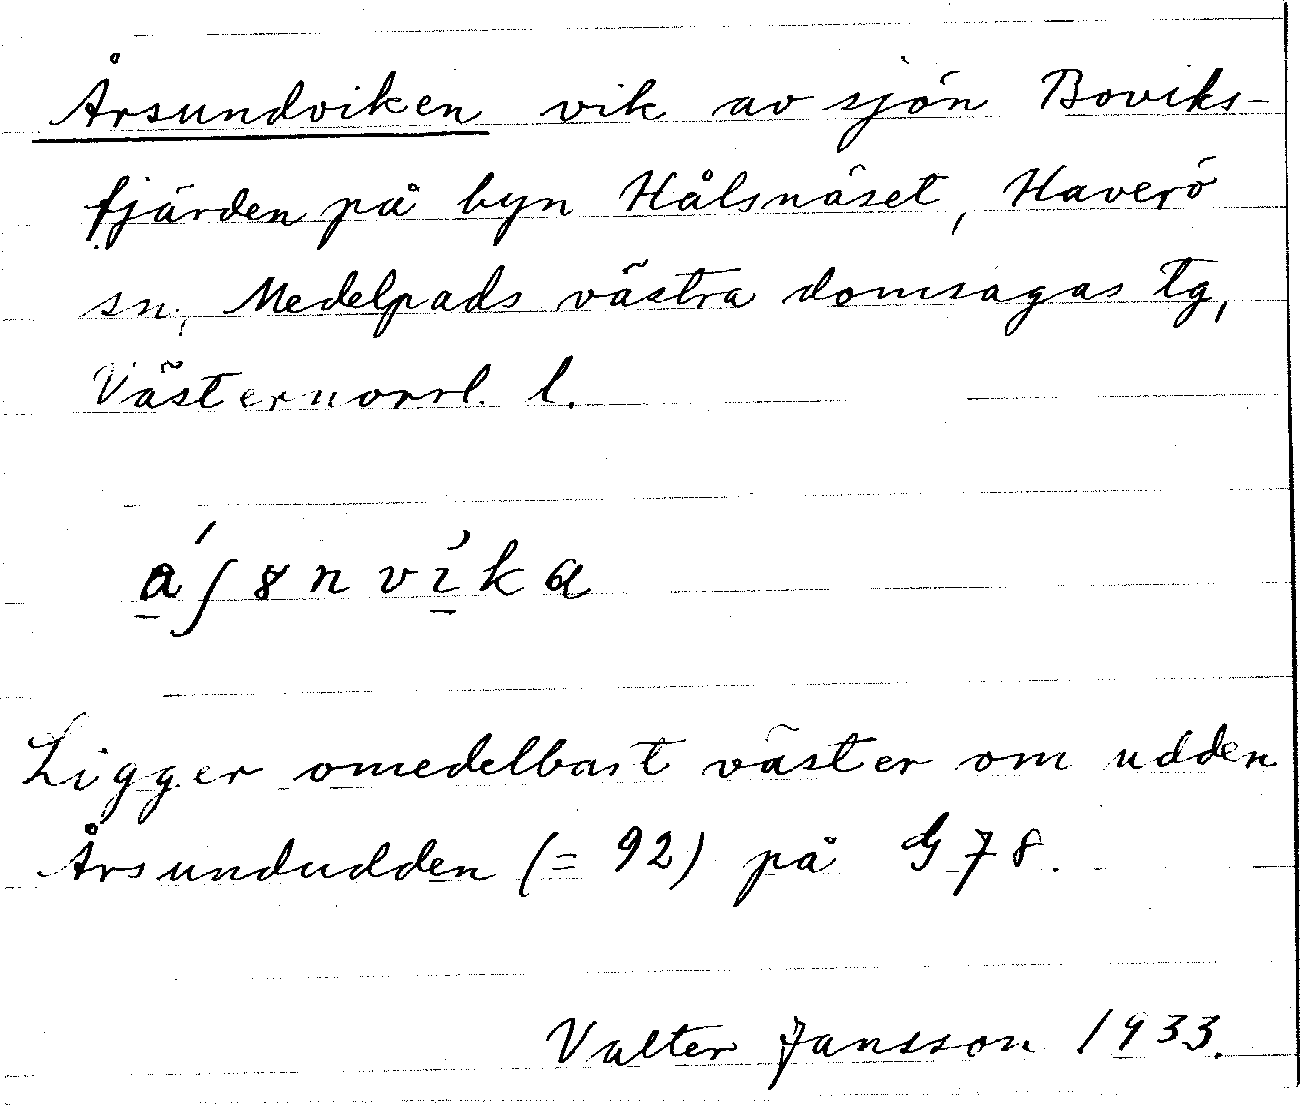 Årsundviken vik av sjön Boviks-
fjärden på byn Hålsnäset, Haverö
sn, Medelpads västra domsagas tg,
Västernorrl. l.
á̱ʃ8nvḯ̱ka
Ligger omedelbart väster om udden
Årsundudden (= 92) på G 78.
Valter Jansson 1933.